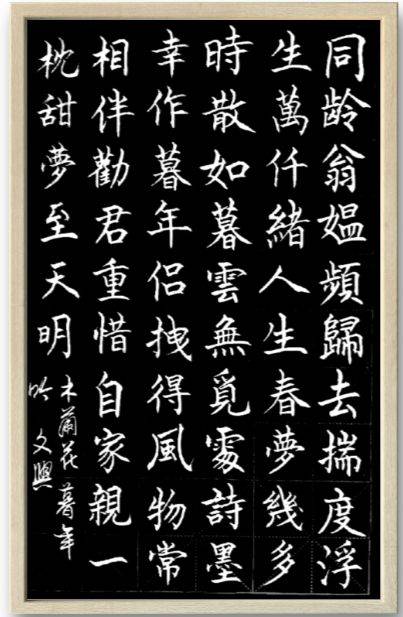 同龄翁媪頻歸去揣度浮
生萬仟緒人生春夢幾多
時散如暮雲無覓處詩墨
幸作暮年侣拽得風物常
相伴勸君重惜自家親一
枕甜夢至天明
木蘭花 暮年
吟 文興